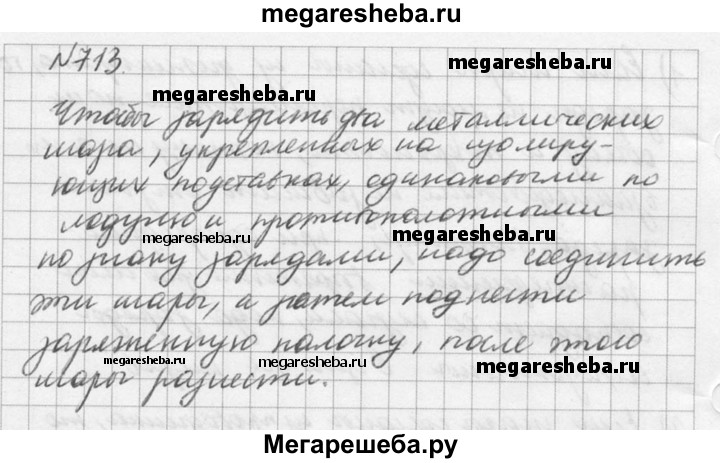 megaresheba.ru
N713.
megaresheba.ru megaresheba.ru
Чтобы зарядить два металлических
шара, укрепленных на изолиру-
ющих подставках, одинаковыми по
модулю и противоположными
megaresheba.ru megaresheba.ru
по знаку зарядами, надо соединить
эти шары, а затем поднести
заряженную палочку, после этого
megaresheba.ru megaresheba.ru megaresheba.ru
шары разнести.
Мегарешеба.ру